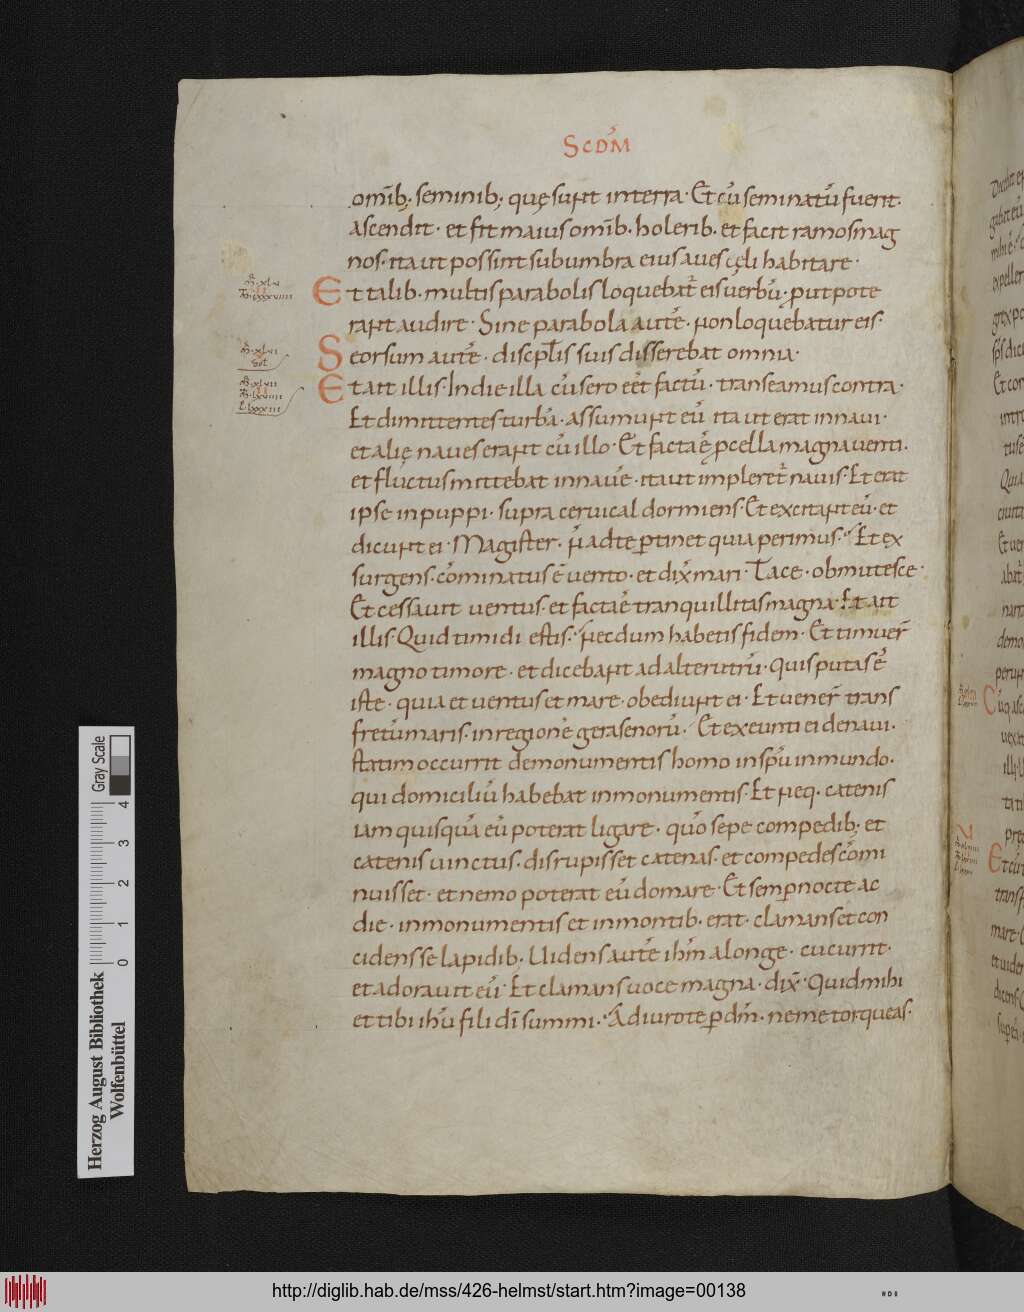 Scdm̄
omīb; seminib; quę sunt in terra. Et cū seminatū fuerit.
ascendit. et fit maius omīb. holerib. et facit ramos mag
nos. ita ut possint sub umbra eius aues cęli habitare.
Et talib. multis parabolis loquebat̄ eis uerbū. put pote
rant audire. Sine parabola autē. non loquebatur eis.
Seorsum autē. discipl̄is suis disserebat omnia.
Et ait illis. In die illa cū sero eēt factū. transeamus contra.
Et dimittentes turbā. assumunt eū ita ut erat in naui.
et alię naues erant cū illo. Et facta ē pcella magna uenti.
et fluctus mittebat in nauē. ita ut impleret̄ nauis. Et erat
ipse in puppi. supra ceruical dormiens. Et excitant eū. et
dicunt ei. Magister. n̄ ad te ptinet quia perimus. Et ex
surgens. cōminatus ē uento. et dix̄ mari. Tace. obmutesce.
Et cessauit uentus. et facta ē tranquillitas magna. Et ait
illis. Quid timidi estis. necdum habetis fidem. Et timuer̄
magno timore. et dicebant ad alterutrū. Quis putas ē
iste. quia et uentus et mare. obediunt ei. Et uener̄ trans
fretū maris. in regionē gerasenorū. Et exeunti ei de naui.
statim occurrit de monumentis homo in spū inmundo.
qui domiciliū habebat in monumentis. Et neq. catenis
iam quisquā eū poterat ligare. quō sepe compedib; et
catenis uinctus. disrupisset catenas. et compedes cōmi
nuisset. et nemo poterat eū domare. Et semp nocte ac
die. in monumentis et in montib. erat. clamans et con
cidens se lapidib. Uidens autē ihm̄ a longe. cucurrit.
et adorauit eū. Et clamans uoce magna. dix̄. Quid mihi
et tibi ihū fili dī summi. Adiuro te p dm̄. ne me torqueas.
Gray Scale
4
3
2
1
0
Herzog August Bibliothek
Wolfenbüttel
http://diglib.hab.de/mss/426-helmst/start.htm?image=00138